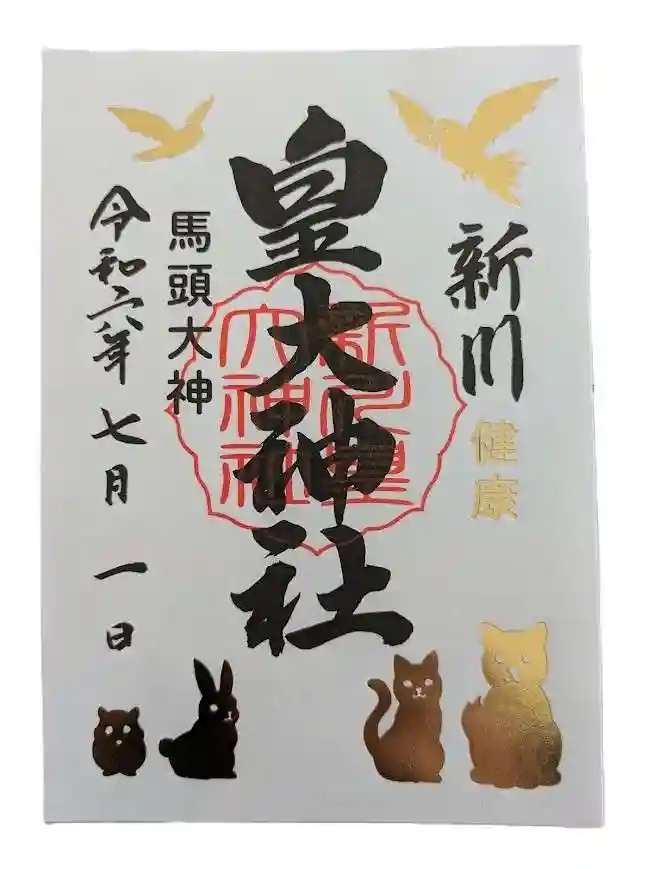 新川
健康
皇大神社
新川皇
大神社
馬頭大神
令和六年七月一日